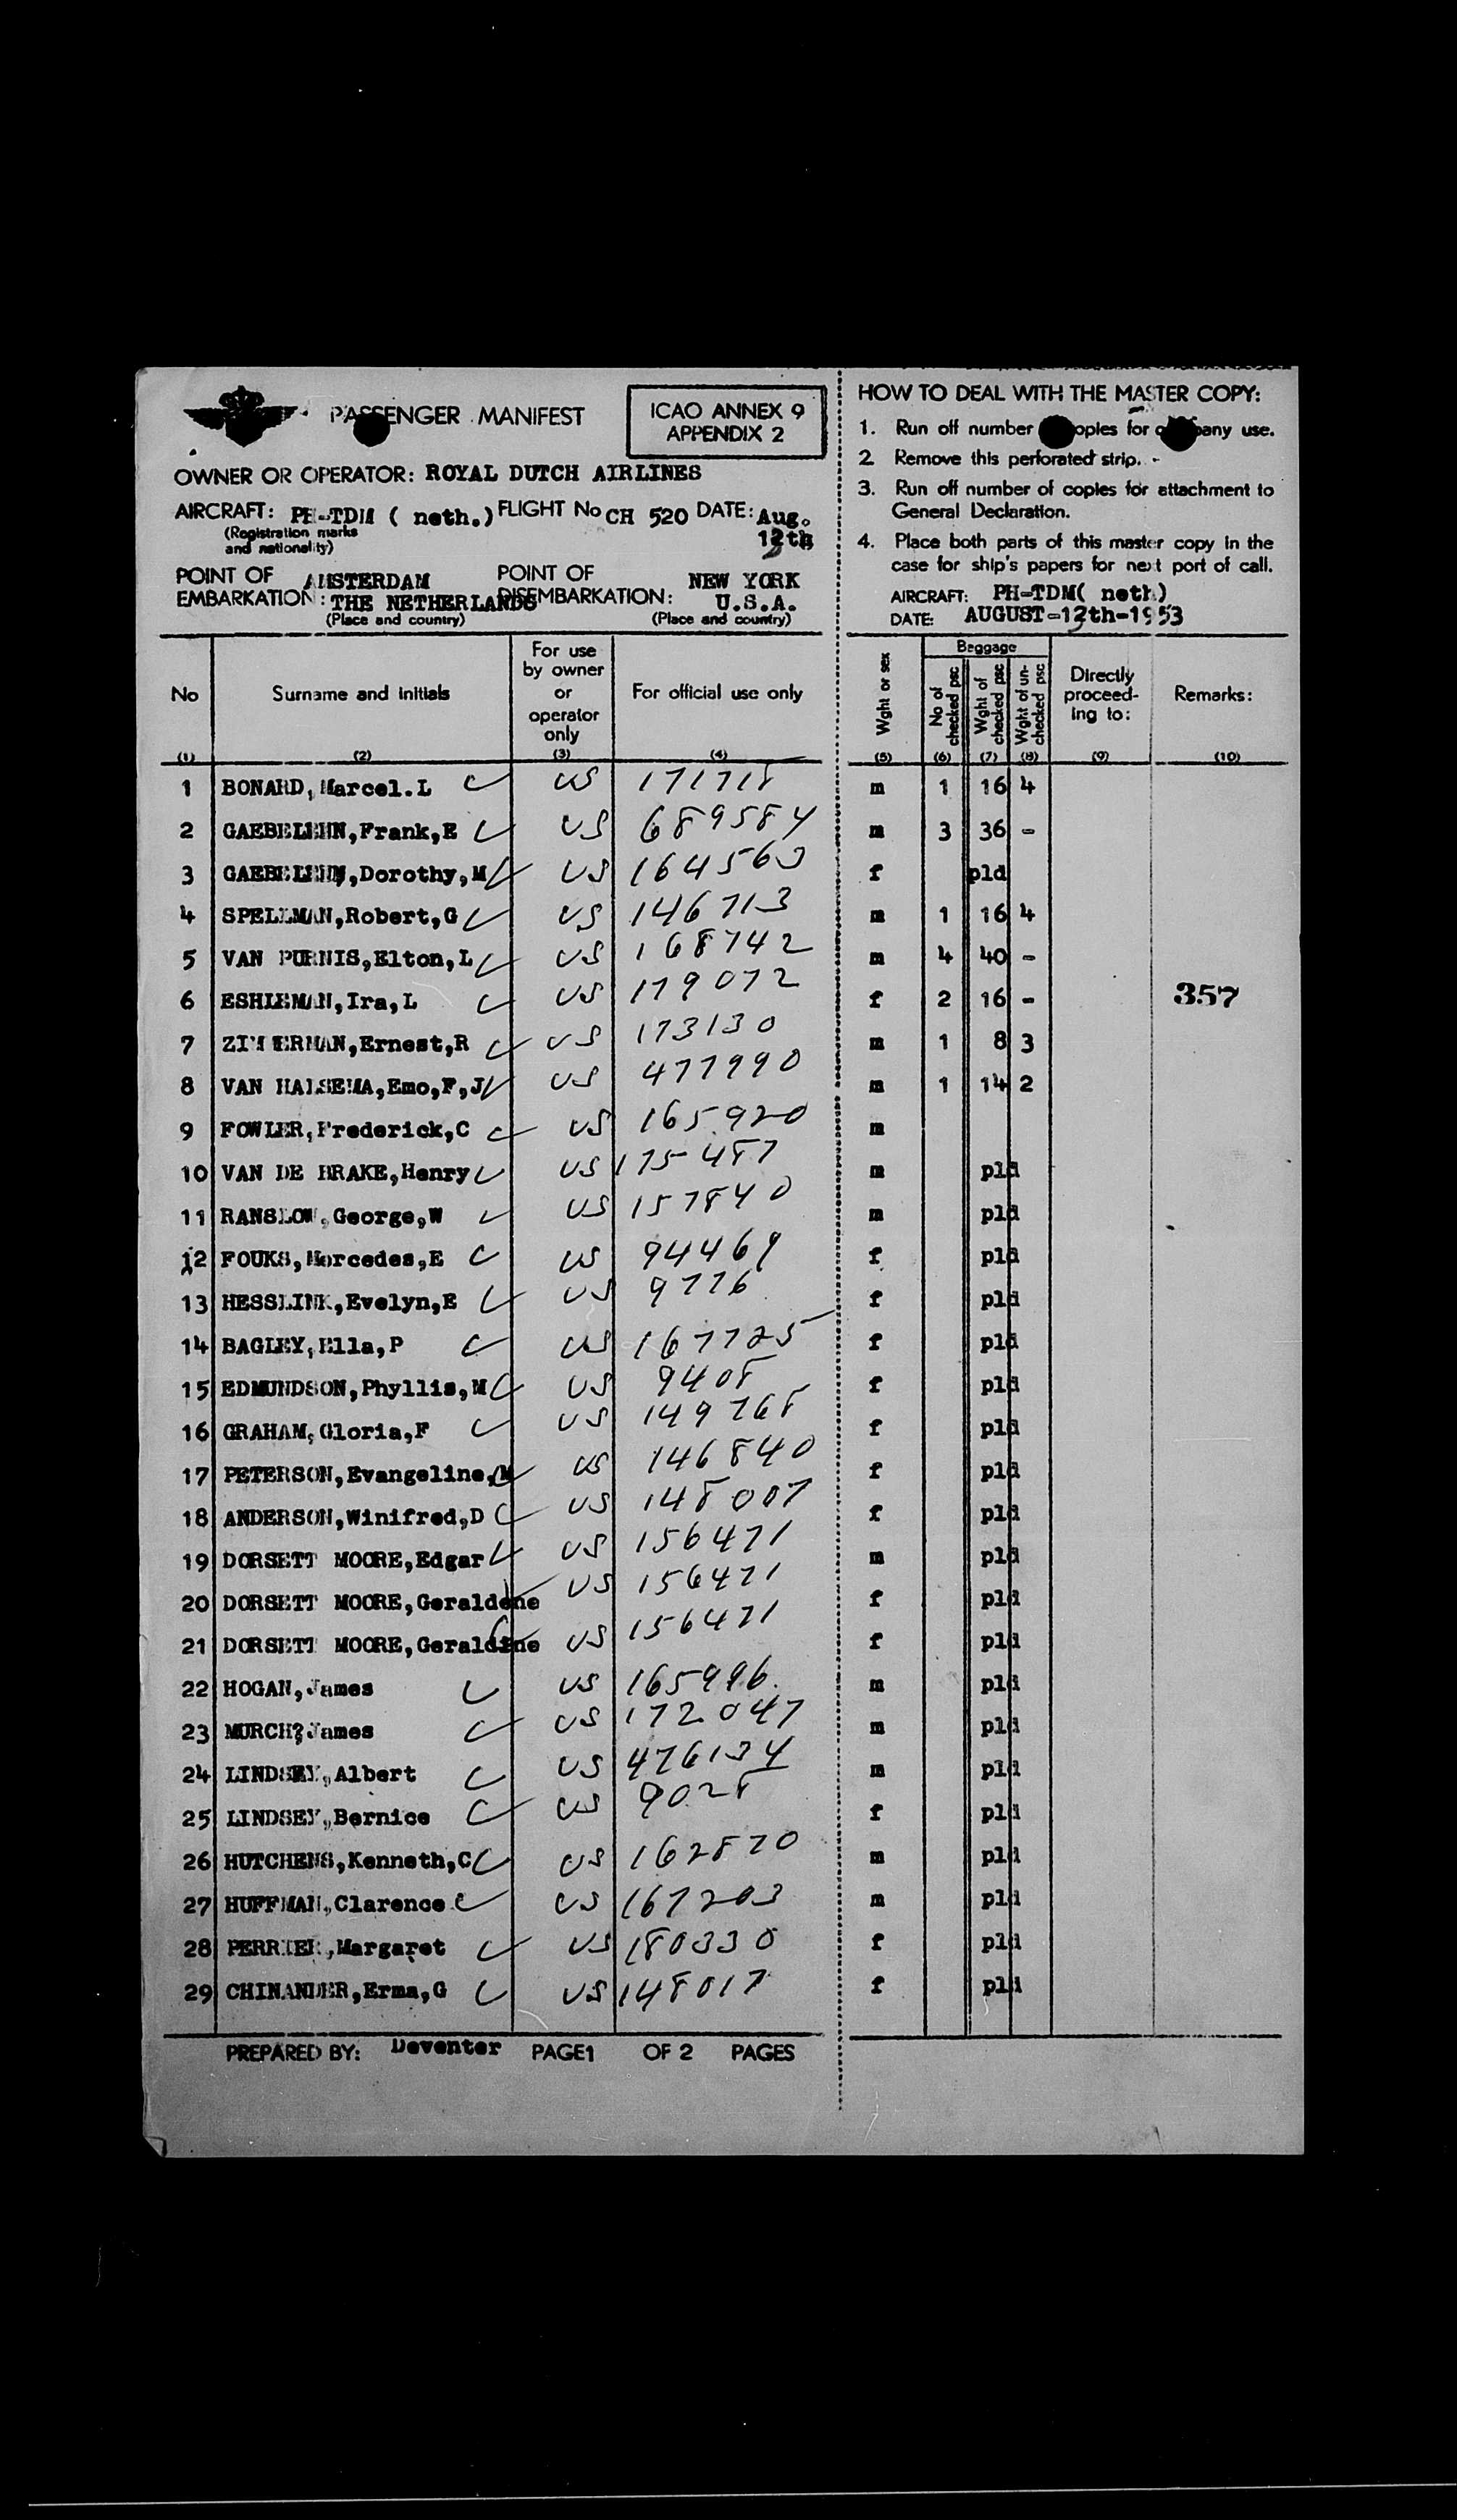 PASSENGER MANIFEST
ICAO ANNEX 9
APPENDIX 2
OWNER OR OPERATOR: ROYAL DUTCH AIRLINES
AIRCRAFT: PH-TDM ( neth.) FLIGHT No CH 520 DATE: Aug.
(Registration marks
and nationality)
POINT OF AMSTERDAM POINT OF NEW YORK
EMBARKATION: THE NETHERLANDS DISEMBARKATION: U.S.A.
(Place and country) (Place and country)
HOW TO DEAL WITH THE MASTER COPY:
1. Run off number copies for company use.
2 Remove this perforated strip.
3. Run off number of copies for attachment to
General Declaration.
4. Place both parts of this master copy in the
case for ship's papers for next port of call.
AIRCRAFT: PH-TDM( neth)
DATE: AUGUST-13th-1953
No Surname and initials For use by owner or operator only For official use only Wght or sex Baggage No of checked psc Wght of checked psc Wght of un-checked psc Directly proceed-ing to: Remarks:
(1) (2) (3) (4) (5) (6) (7) (8) (9) (10)
1 BONARD, Marcel.L US 171718 m 1 16 4
2 GAEBELEHN,Frank,E US 689584 m 3 36 -
3 GAEBELEHN,Dorothy,M US 164563 f pld
4 SPELLMAN,Robert,G US 146713 m 1 16 4
5 VAN PURNIS,Elton,L US 168742 m 4 40 -
6 ESHLEMAN,Ira,L US 179072 f 2 16 - 357
7 ZIMMERMAN,Ernest,R US 173130 m 1 8 3
8 VAN HALSEMA,Emo,F,J US 477990 m 1 14 2
9 FOWLER,Frederick,C US 165920 m
10 VAN DE BRAKE,Henry US 175487 m pld
11 RANSLOW,George,W US 157840 m pld
12 FOUKS,Mercedes,E US 94469 f pld
13 HESSLINK,Evelyn,E US 9776 f pld
14 BAGLEY,Ella,P US 167725 f pld
15 EDMUNDSON,Phyllis,M US 9408 f pld
16 GRAHAM,Gloria,F US 149768 f pld
17 PETERSON,Evangeline,M US 146840 f pld
18 ANDERSON,Winifred,D US 148007 f pld
19 DORSETT MOORE,Edgar US 156471 m pld
20 DORSETT MOORE,Geraldene US 156471 f pld
21 DORSETT MOORE,Geraldine US 156471 f pld
22 HOGAN,James US 165996 m pld
23 MURCH?James US 172047 m pld
24 LINDSEY,Albert US 476134 m pld
25 LINDSEY,Bernice US 9028 f pld
26 HUTCHENS,Kenneth,C US 162870 m pld
27 HUFFMAN,Clarence US 167203 m pld
28 PERRIER,Margaret US 180330 f pld
29 CHINANDER,Erma,G US 148017 f pld
PREPARED BY: Deventer PAGE1 OF 2 PAGES